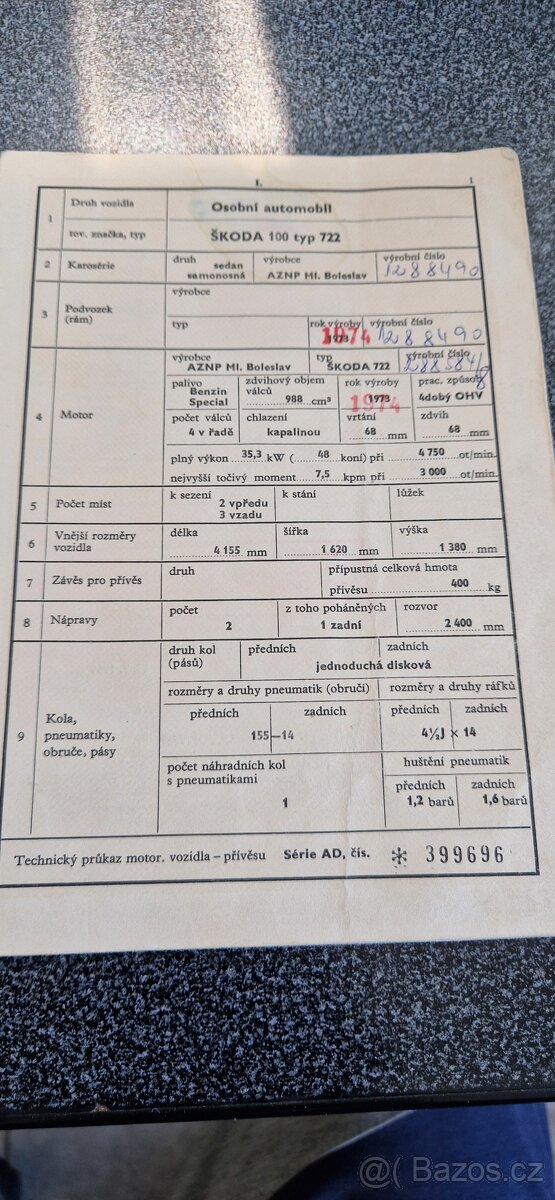 I. 1
1 Druh vozidla Osobní automobil
tov. značka, typ ŠKODA 100 typ 722
2 Karosérie druh sedan samonosná výrobce AZNP Ml. Boleslav výrobní číslo 1288490
3 Podvozek (rám) výrobce
typ rok výroby 1973 1974 výrobní číslo 1288490
4 Motor výrobce AZNP Ml. Boleslav typ ŠKODA 722 výrobní číslo
palivo Benzin Special zdvihový objem válců 988 cm³ rok výroby 1973 1974 prac. způsob 4dobý OHV
počet válců 4 v řadě chlazení kapalinou vrtání 68 mm zdvih 68 mm
plný výkon 35,3 kW ( 48 koní) při 4 750 ot/min.
nejvyšší točivý moment 7,5 kpm při 3 000 ot/min.
5 Počet míst k sezení 2 vpředu 3 vzadu k stání lůžek
6 Vnější rozměry vozidla délka 4 155 mm šířka 1 620 mm výška 1 380 mm
7 Závěs pro přívěs druh přípustná celková hmota přívěsu 400 kg
8 Nápravy počet 2 z toho poháněných 1 zadní rozvor 2 400 mm
9 Kola, pneumatiky, obruče, pásy druh kol (pásů) předních zadních
jednoduchá disková
rozměry a druhy pneumatik (obručí) rozměry a druhy ráfků
předních zadních předních zadních
155–14 4½J × 14
počet náhradních kol s pneumatikami 1 huštění pneumatik
předních 1,2 barů zadních 1,6 barů
Technický průkaz motor. vozidla – přívěsu Série AD, čís. * 399696
@( Bazos.cz